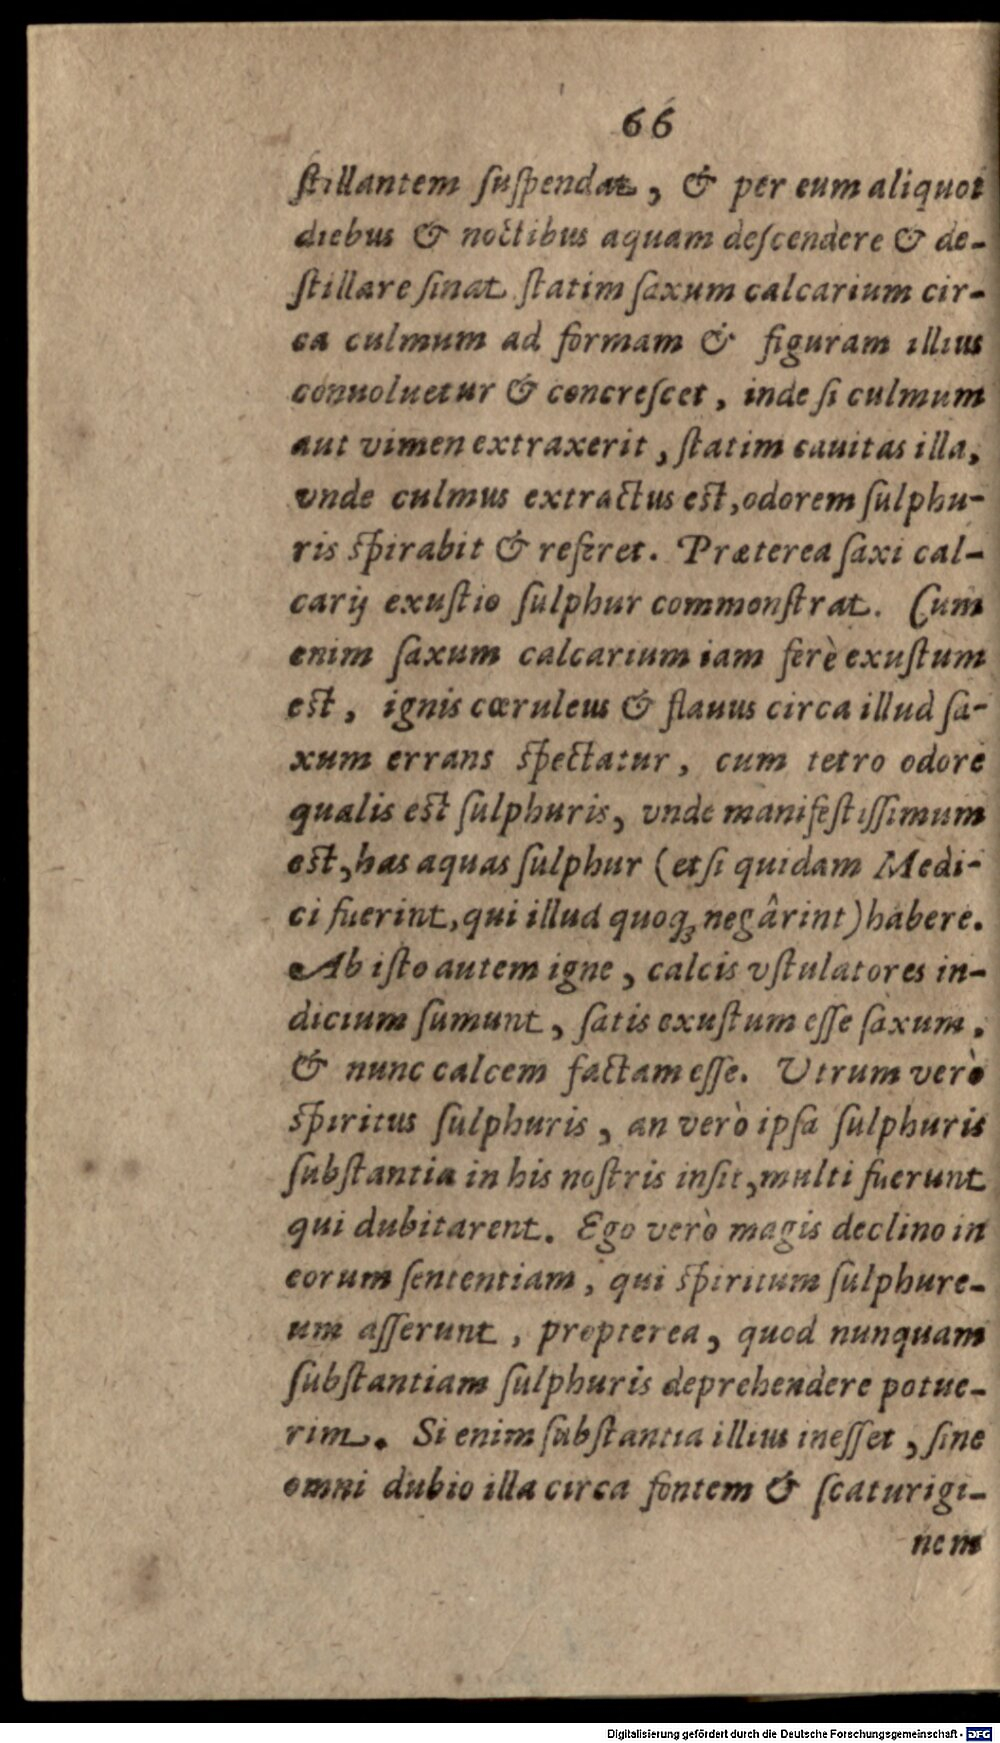 66
ſtillantem ſuſpendat, & per eum aliquot
diebus & noctibus aquam deſcendere & de-
ſtillare ſinat ſtatim ſaxum calcarium cir-
ca culmum ad formam & figuram illius
conuoluetur & concreſcet, inde ſi culmum
aut vimen extraxerit, ſtatim cauitas illa,
vnde culmus extractus eſt, odorem ſulphu-
ris ſpirabit & referet. Præterea ſaxi cal-
carij exuſtio ſulphur commonſtrat. Cum
enim ſaxum calcarium iam ferè exuſtum
eſt, ignis cœruleus & flauus circa illud ſa-
xum errans ſpectatur, cum tetro odore
qualis eſt ſulphuris, vnde manifeſtiſſimum
eſt, has aquas ſulphur (etſi quidam Medi-
ci fuerint, qui illud quoq; negârint) habere.
Ab iſto autem igne, calcis vſtulatores in-
dicium ſumunt, ſatis exuſtum eſſe ſaxum,
& nunc calcem factam eſſe. Utrum verò
ſpiritus ſulphuris, an verò ipſa ſulphuris
ſubſtantia in his noſtris inſit, multi fuerunt
qui dubitarent. Ego verò magis declino in
eorum ſententiam, qui ſpiritum ſulphure-
um aſſerunt, propterea, quod nunquam
ſubſtantiam ſulphuris deprehendere potue-
rim. Si enim ſubſtantia illius ineſſet, ſine
omni dubio illa circa fontem & ſcaturigi-
nem
Digitalisierung gefördert durch die Deutsche Forschungsgemeinschaft - DFG